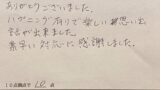 ありがとうございました。
ハプニング有りで楽しい思い出
が出来ました。
素早い対応に感謝しました。
10点満点で10点